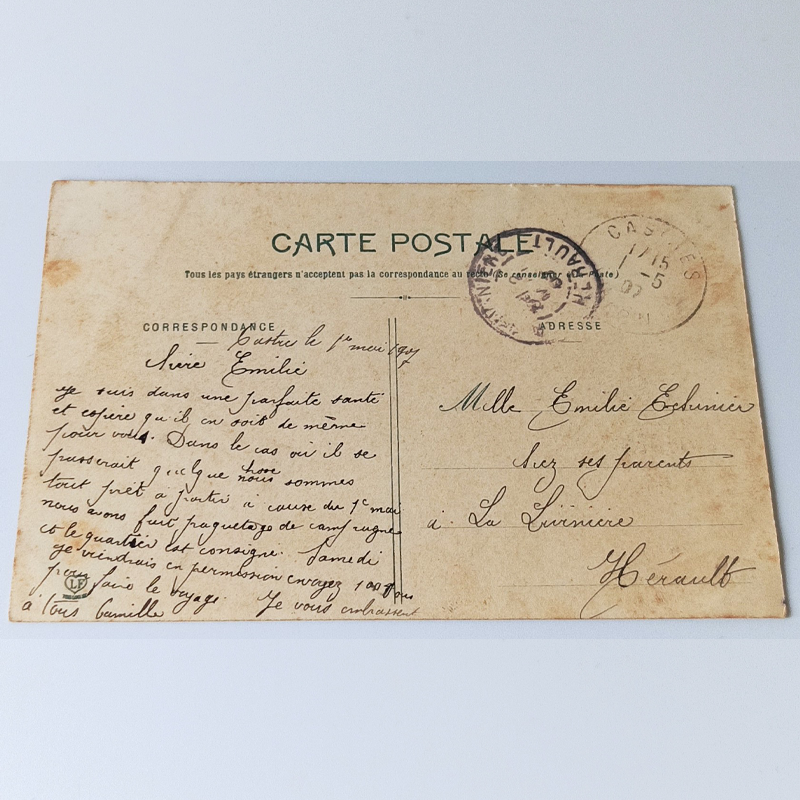 CARTE POSTALE
Tous les pays étrangers n'acceptent pas la correspondance au recto (Se renseigner à la Poste)
CORRESPONDANCE
ADRESSE
CASTRES
15
HÉRAULT
Castre le 1er mai 1907
Emilie
Je suis dans une parfaite santé
et espère qu'il en soit de même
pour vous. Dans le cas où il se
passerait quelque chose nous sommes
tout prêt à partir à cause du 1e mai
nous avons fait paquetage de campagne
et le quartier est consigné. Samedi
je viendrais en permission envoyez
pour faire le voyage. Je vous embrassent
à tous famille
Mlle Emilie
chez ses parents
à La Livinière
Hérault
LF